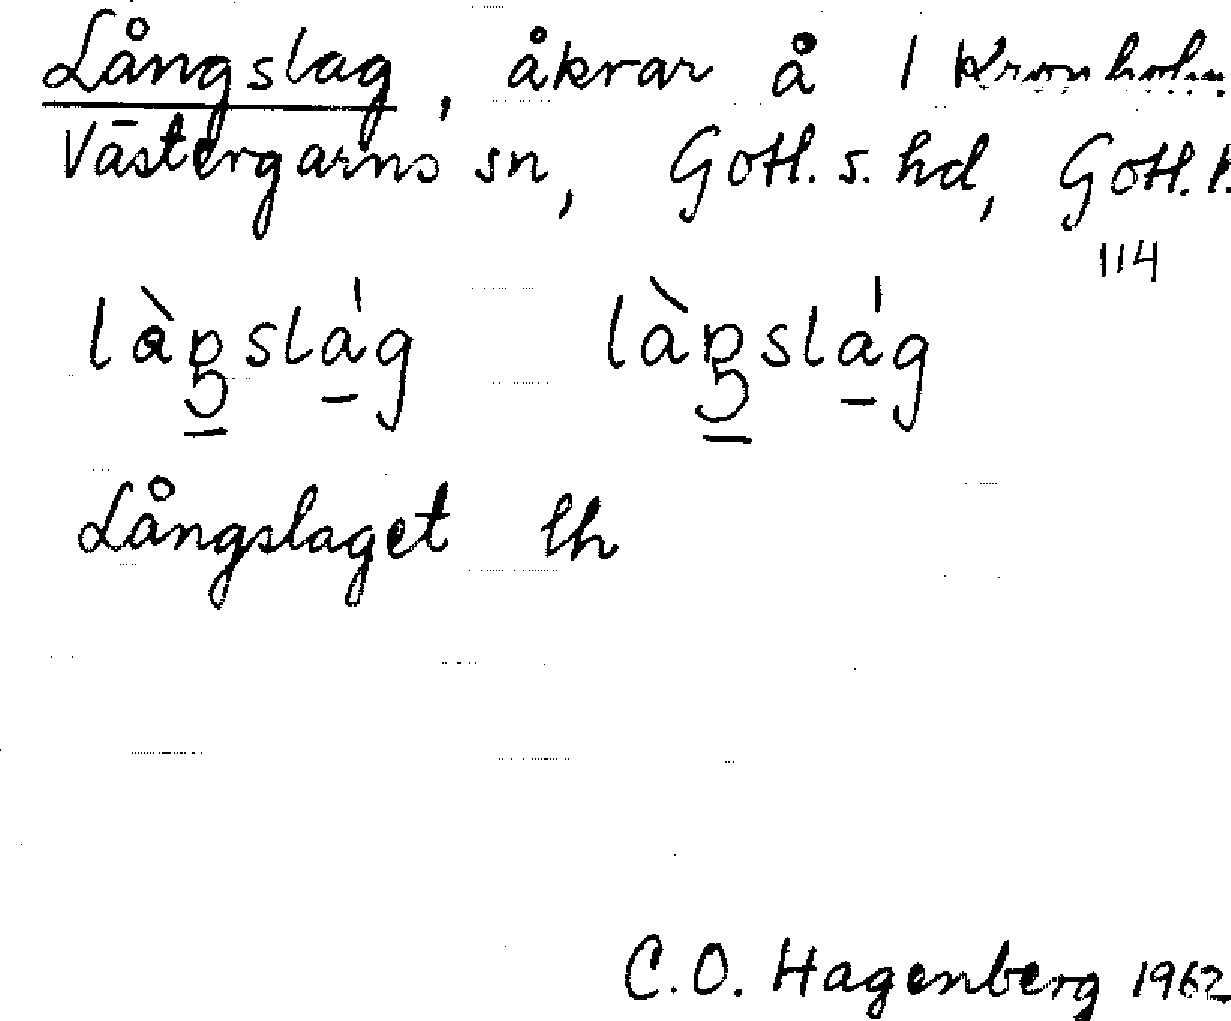 Långslag, åkrar å 1 Kronholm
Västergarns sn, Gotl. s. hd, Gotl. l.
114
Långslaget lh
C.O. Hagenberg 1962